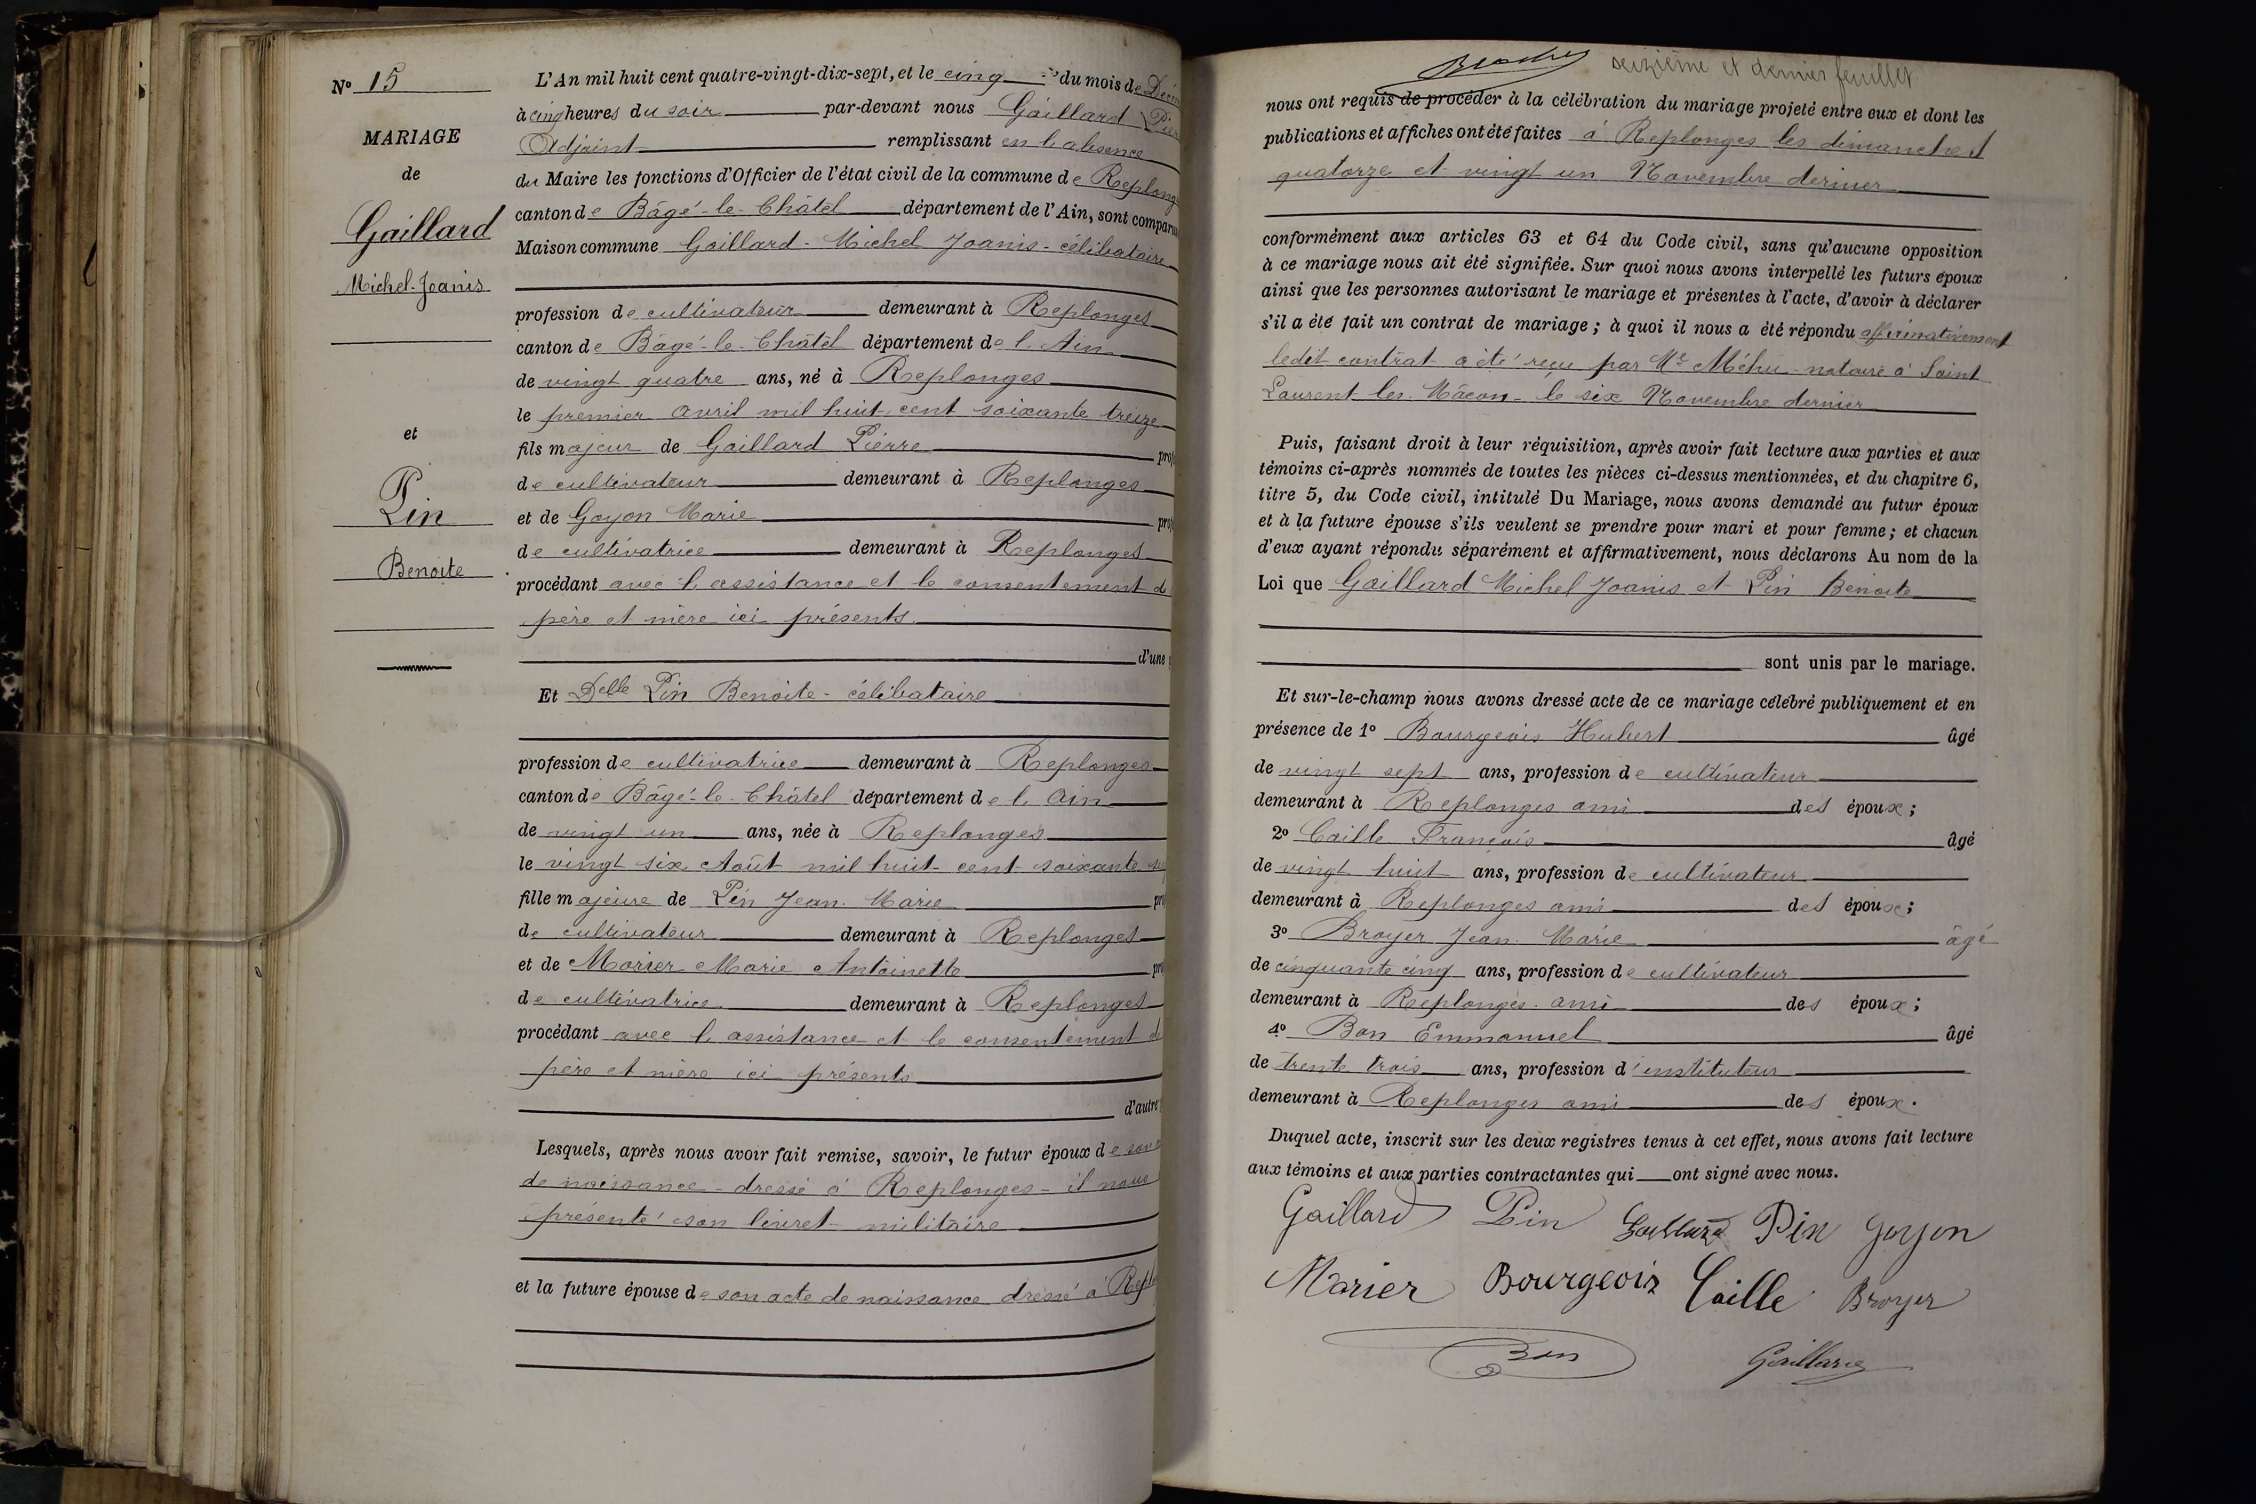 N° 15
MARIAGE
de
Gaillard
Michel-Joanis
et
Pin
Benoite
L'An mil huit cent quatre-vingt-dix-sept, et le cinq du mois de
à cinq heures du soir par-devant nous Gaillard
Adjoint remplissant en l'absence
du Maire les fonctions d'Officier de l'état civil de la commune de
canton de Bâgé-le-Châtel département de l'Ain, sont
Maison commune Gaillard - Michel Joanis - célibataire
profession de cultivateur demeurant à Replonges
canton de Bâgé-le-Châtel département de l'Ain
de vingt quatre ans, né à Replonges
le premier avril mil huit cent soixante treize
fils majeur de Gaillard Pierre
de cultivateur demeurant à Replonges
et de Goyon Marie
de cultivatrice demeurant à Replonges
procédant avec l'assistance et le consentement d
père et mère ici présents
d'une
Et Delle Pin Benoite - célibataire
profession de cultivatrice demeurant à Replonges
canton de Bâgé-le-Châtel département de l'Ain
de vingt un ans, née à Replonges
le vingt six Août mil huit cent soixante
fille majeure de Pin Jean Marie
de cultivateur demeurant à Replonges
et de Morier Marie Antoinette
de cultivatrice demeurant à Replonges
procédant avec l'assistance et le consentement d
père et mère ici présents
d'autre
Lesquels, après nous avoir fait remise, savoir, le futur époux de son
de naissance - dressé à Replonges - il nous
présenté son livret militaire
et la future épouse de son acte de naissance dressé à
seizième et dernier feuillet
nous ont requis de procéder à la célébration du mariage projeté entre eux et dont les
publications et affiches ont été faites à Replonges les dimanches
quatorze et vingt un Novembre dernier
conformément aux articles 63 et 64 du Code civil, sans qu'aucune opposition
à ce mariage nous ait été signifiée. Sur quoi nous avons interpellé les futurs époux
ainsi que les personnes autorisant le mariage et présentes à l'acte, d'avoir à déclarer
s'il a été fait un contrat de mariage ; à quoi il nous a été répondu affirmativement
ledit contrat a été reçu par Me Méhu notaire à Saint
Laurent les Mâcon - le six Novembre dernier
Puis, faisant droit à leur réquisition, après avoir fait lecture aux parties et aux
témoins ci-après nommés de toutes les pièces ci-dessus mentionnées, et du chapitre 6,
titre 5, du Code civil, intitulé Du Mariage, nous avons demandé au futur époux
et à la future épouse s'ils veulent se prendre pour mari et pour femme ; et chacun
d'eux ayant répondu séparément et affirmativement, nous déclarons Au nom de la
Loi que Gaillard Michel Joanis et Pin Benoite
sont unis par le mariage.
Et sur-le-champ nous avons dressé acte de ce mariage célébré publiquement et en
présence de 1° Bourgeois Hubert âgé
de vingt sept ans, profession de cultivateur
demeurant à Replonges ami des époux ;
2° Caille François âgé
de vingt huit ans, profession de cultivateur
demeurant à Replonges ami des époux ;
3° Broyer Jean Marie âgé
de cinquante cinq ans, profession de cultivateur
demeurant à Replonges ami des époux ;
4° Bon Emmanuel âgé
de trente trois ans, profession d'instituteur
demeurant à Replonges ami des époux.
Duquel acte, inscrit sur les deux registres tenus à cet effet, nous avons fait lecture
aux témoins et aux parties contractantes qui ont signé avec nous.
Gaillard Pin Gaillard Pin Goyon
Morier Bourgeois Caille Broyer
Bon Gaillard